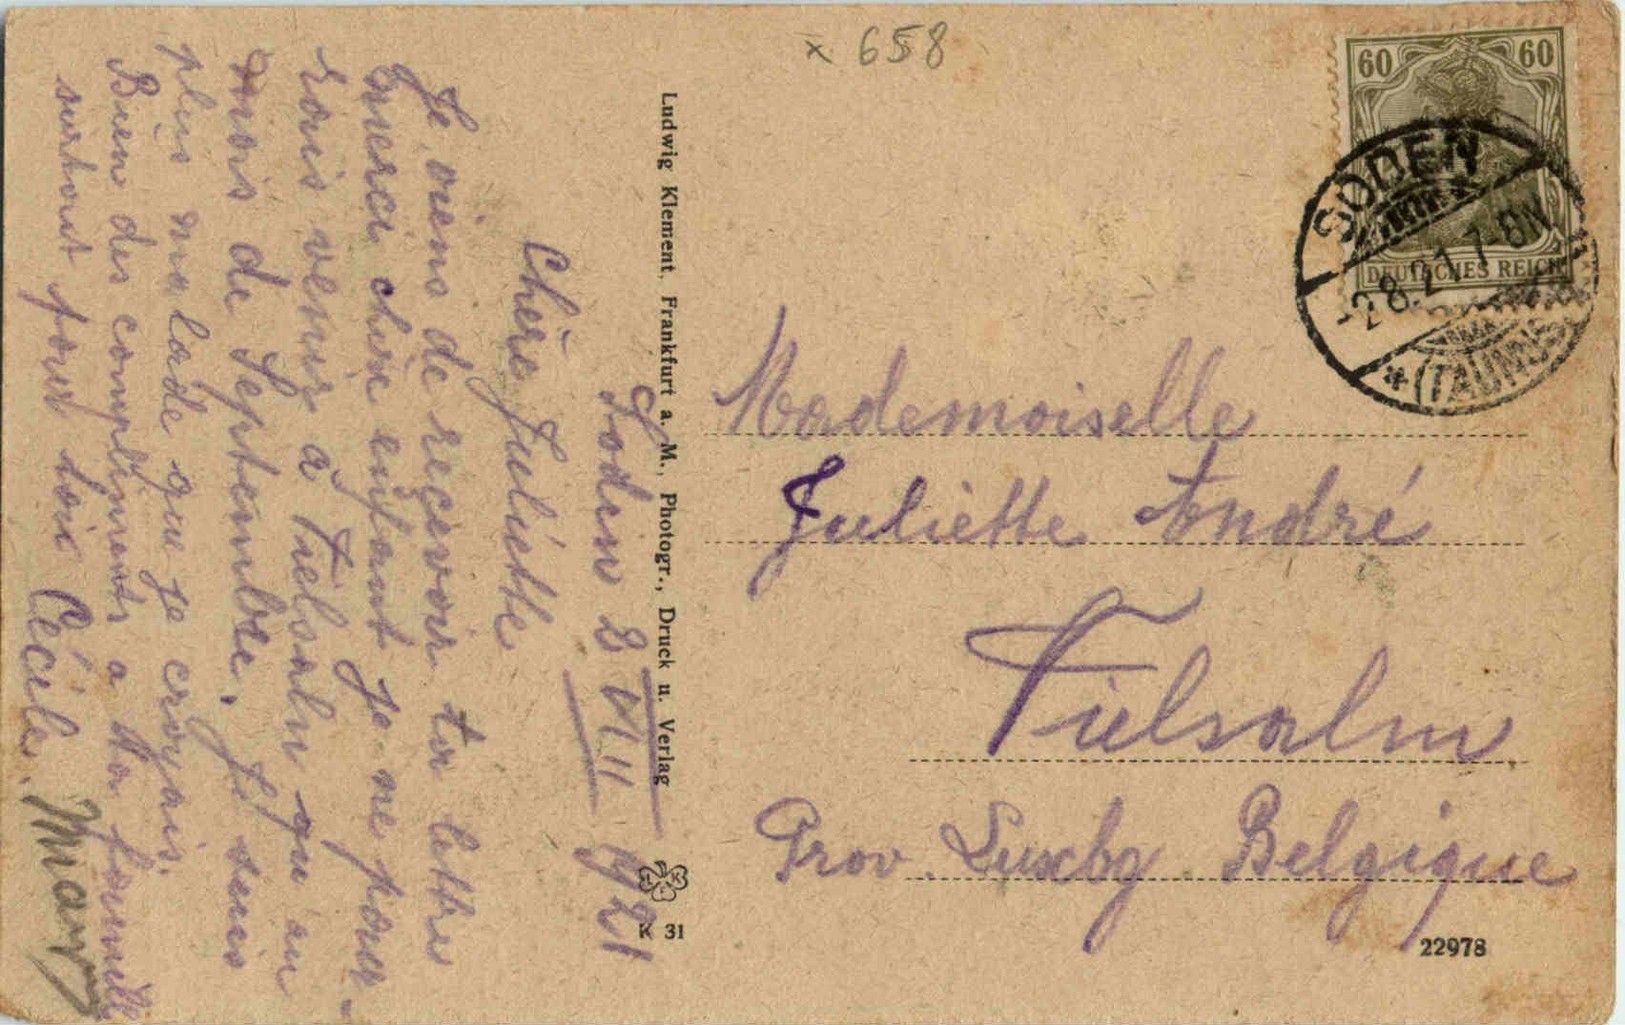 Soden 2 VIII 1921
Chère Juliette
Je viens de reçevoir ta lettre
merci chère enfant je ne pour-
rais venir à Vielsalm qu'au
mois de Septembre. Je suis
plus malade que je croyais.
Bien des compliments a ta famille
surtout pour toi Cécile.
Ludwig Klement, Frankfurt a. M., Photogr., Druck u. Verlag
K 31
x 658
60 60
DEUTSCHES REICH
SODEN
-2.8.21.7-8N.
*(TAUNUS)
Mademoiselle
Juliette André
Vielsalm
Prov. Luxbg Belgique
22978